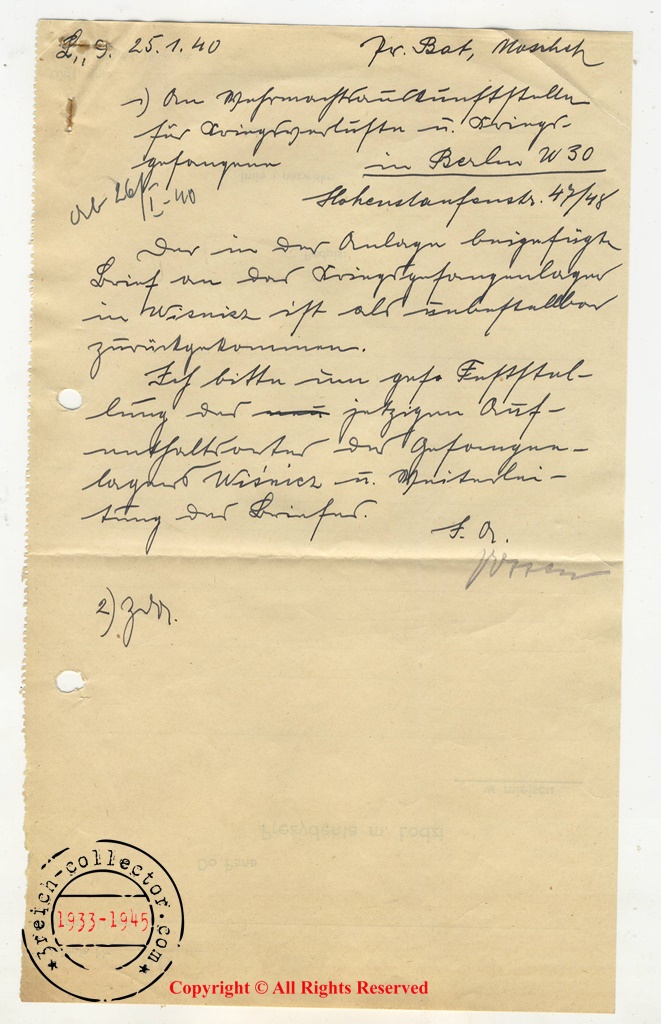 L., d. 25.1.40
1) An Wehrmachtsauskunftstelle
für Kriegsverluste u. Kriegs-
gefangene in Berlin W 30
ab 26/I.-40
Hohenstaufenstr. 47/48
Der in der Anlage beigefügte
Brief an das Kriegsgefangenlager
in Wisnicz ist als unbestellbar
zurückgekommen.
Ich bitte um gefs. Feststel-
lung des jetzigen Auf-
enthaltsortes des Gefangen-
lagers Wiśnicz u. Weiterlei-
tung des Briefes.
I. A.
2) ZdA.
w miejscu
Prezydenta m. Łodzi
Do Pana
3reich-collector.com
1933-1945
Copyright © All Rights Reserved